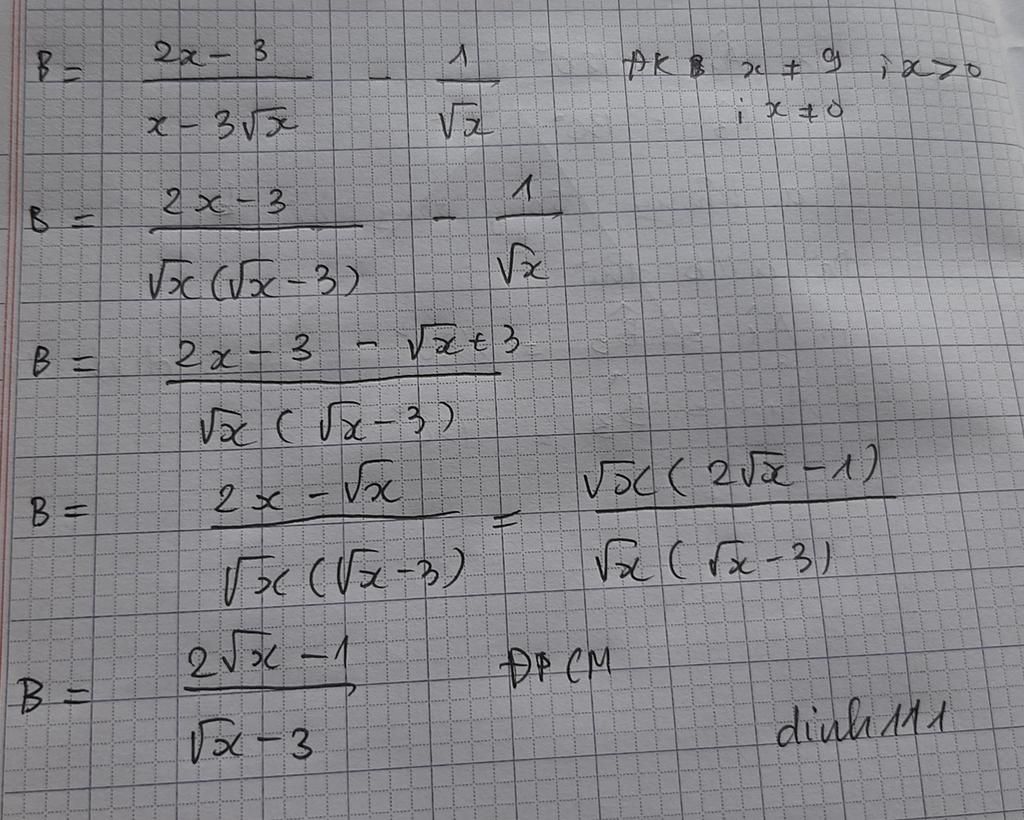 B = (2x - 3)/(x - 3√x) - 1/√x ĐK x ≠ 9 ; x > 0
; x ≠ 0
B = (2x - 3)/(√x (√x - 3)) - 1/√x
B = (2x - 3 - √x + 3)/(√x (√x - 3))
B = (2x - √x)/(√x (√x - 3)) = (√x (2√x - 1))/(√x (√x - 3))
B = (2√x - 1)/(√x - 3) ĐPCM
dinh111